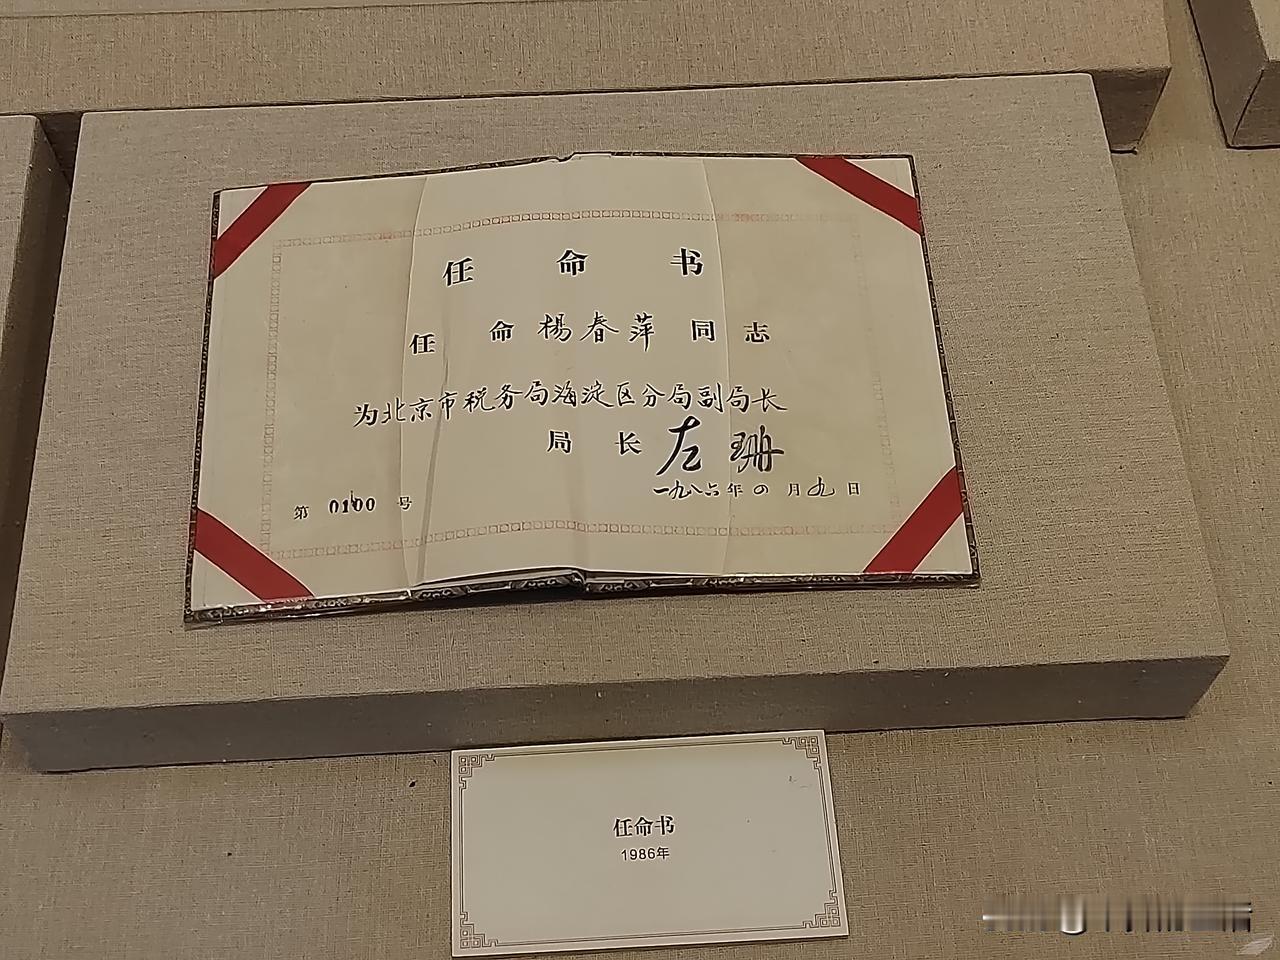 任命书
任命楊春萍同志
为北京市税务局海淀区分局副局长
局长 左珊
第 0100 号
一九八六年四月九日
任命书
1986年